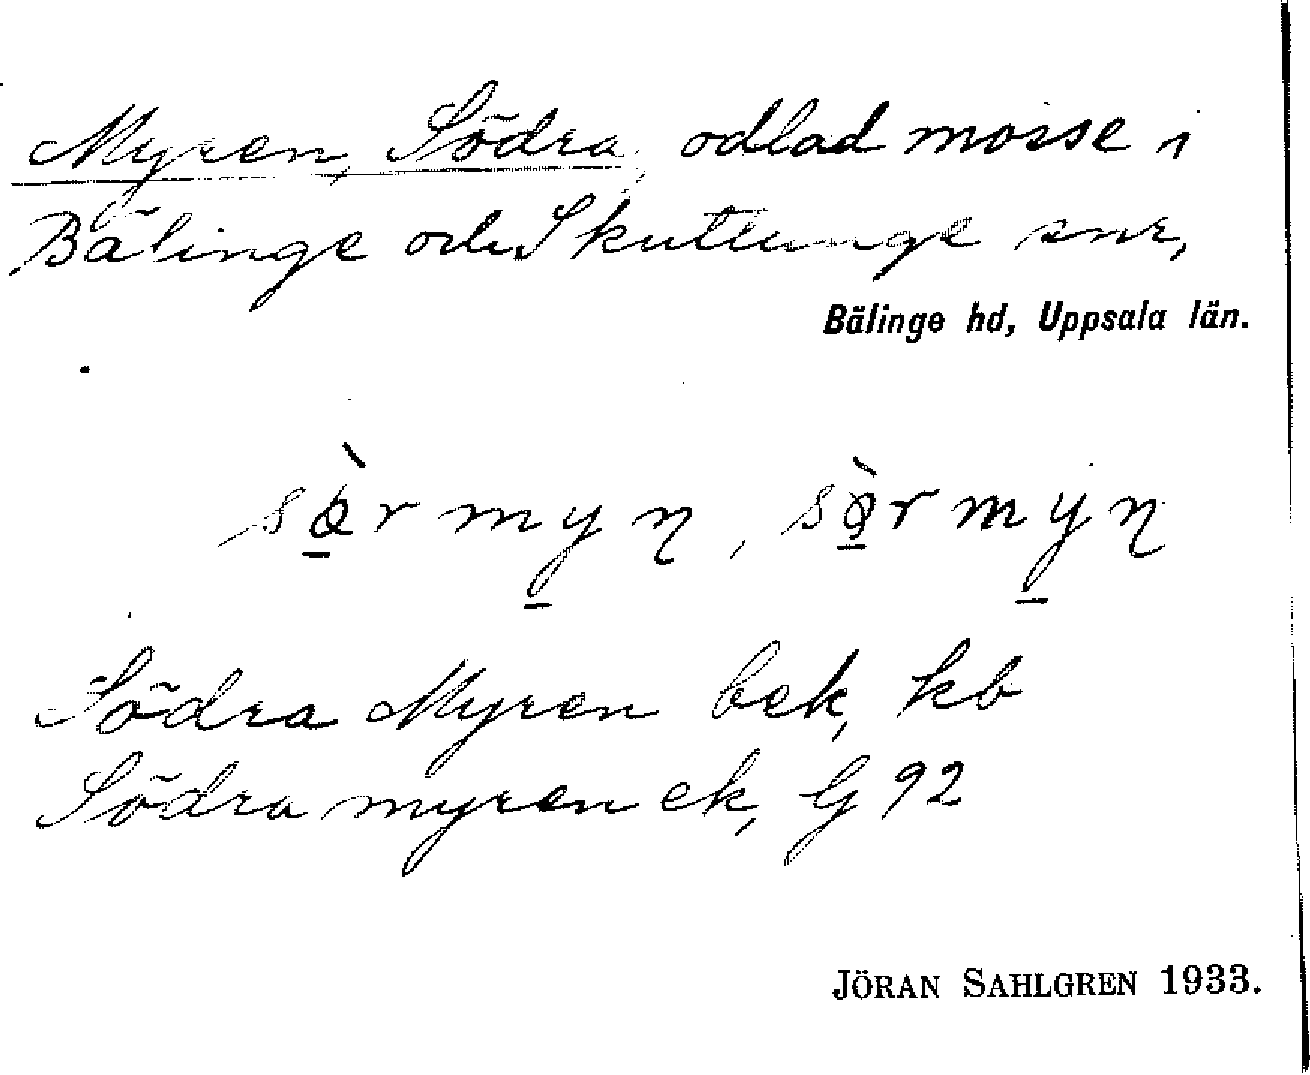 Myren, Södra, odlad mosse i
Bälinge och Skuttunge snr,
Bälinge hd, Uppsala län.
sø̲̀r my̲ɳ, sø̲̀r my̲ɳ
Södra Myren bek, kb
Södra myren ek, G 92
JÖRAN SAHLGREN 1933.